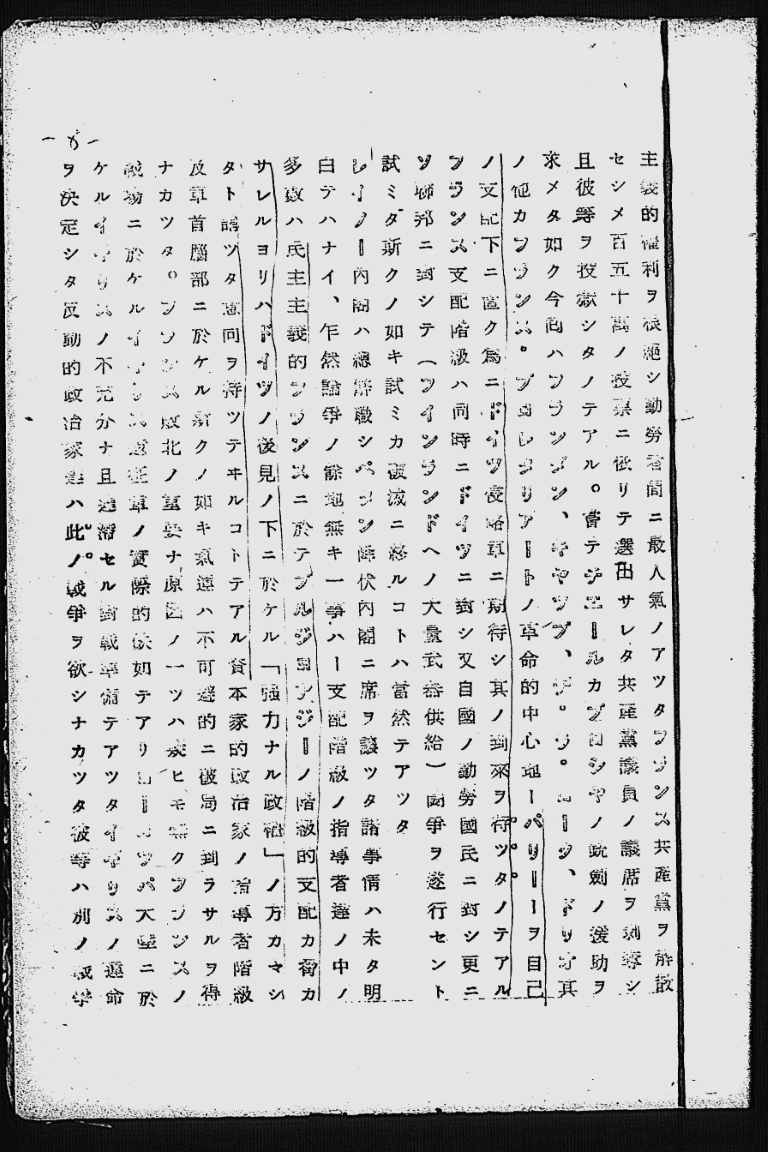 主義的福利ヲ根絶シ勤労者間ニ最人氣ノアツタフランス共産黨ヲ解散
セシメ百五十萬ノ投票ニ依リテ選出サレタ共産黨議員ノ議席ヲ剥奪シ
且彼等ヲ投獄シタノテアル。嘗テチエールカプロシヤノ銃劍ノ援助ヲ
求メタ如ク今尚ハフランダン、キヤツプ、デ。ラ。ロータ、ドリオ其
ノ他カフランス。プロレタリアートノ革命的中心地ーパリーーヲ自己
ノ支配下ニ置ク為ニドイツ侵略軍ニ期待シ其ノ到來ヲ待ツタノテアル
フランス支配階級ハ同時ニドイツニ對シ又自國ノ勤勞國民ニ對シ更ニ
ソ聯邦ニ對シテ(フインランドヘノ大量武器供給)鬪爭ヲ遂行セント
試ミタ斯クノ如キ試ミカ破滅ニ終ルコトハ當然テアツタ
レイノー内閣ハ總辭職シペタン降伏内閣ニ席ヲ譲ツタ諸事情ハ未タ明
白テハナイ、乍然論爭ノ餘地無キ一事ハー支配階級ノ指導者達ノ中ノ
多數ハ民主主義的フランスニ於テブルジヨアジーノ階級的支配カ脅カ
サレルヨリハドイツノ後見ノ下ニ於ケル「強力ナル政權」ノ方カマシ
タト謂ツタ意向ヲ持ツテヰルコトテアル資本家的政治家ノ指導者階級
及軍首腦部ニ於ケル斯クノ如キ氣運ハ不可避的ニ破局ニ到ラサルヲ得
ナカツタ。フランス敗北ノ重要ナ原因ノ一ツハ疑ヒモ無クフランスノ
戰場ニ於ケルイギリス遠征軍ノ實際的缺如テアリヨーロツパ大陸ニ於
ケルイギリスノ不充分ナ且遅滯セル對戰準備テアツタイギリスノ運命
ヲ決定シタ反動的政治家達ハ此ノ戰爭ヲ欲シナカツタ彼等ハ別ノ戰爭